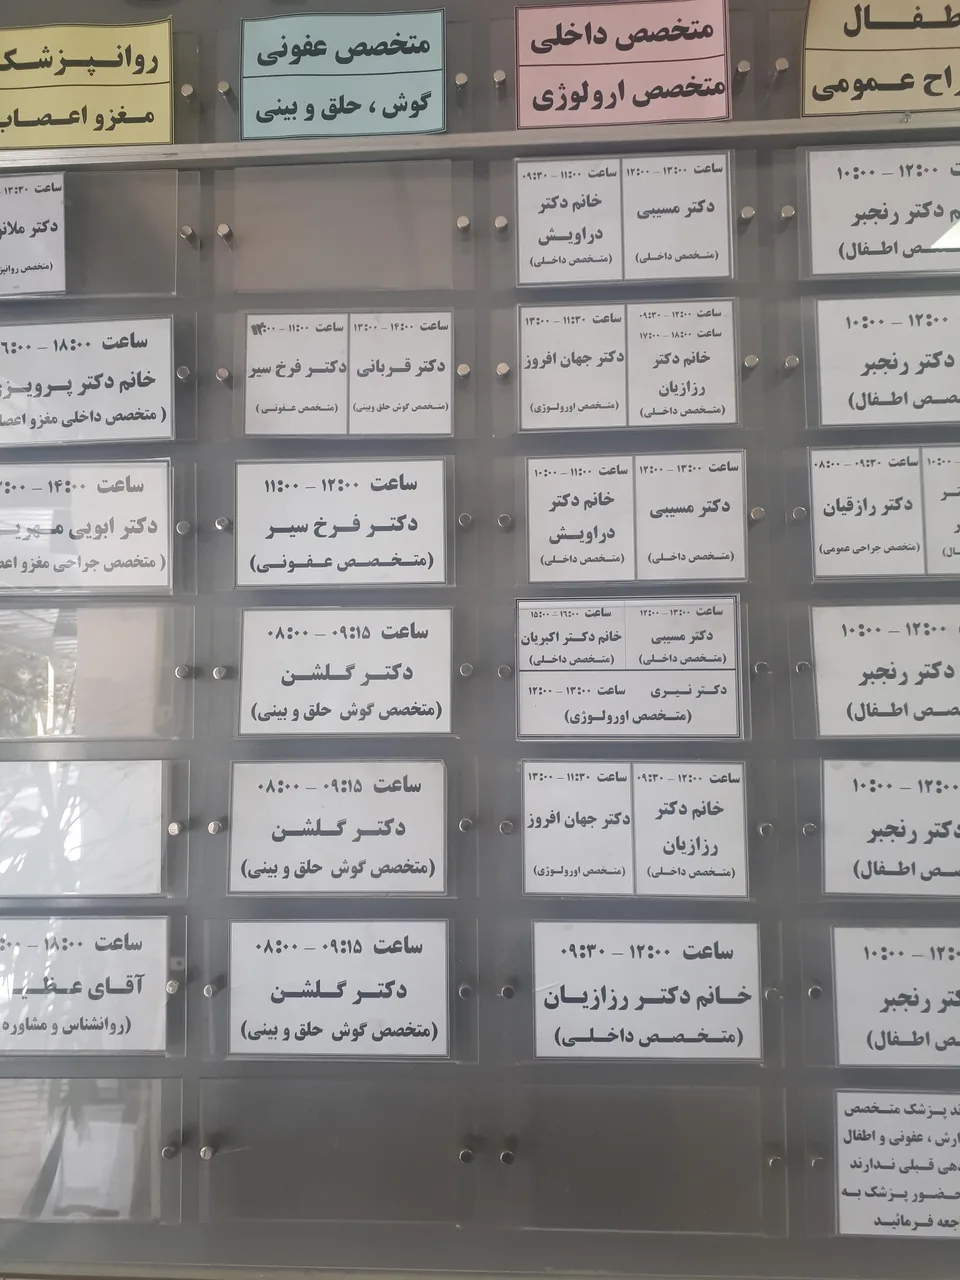 طفال
راح عـمومی
متخصص داخلی
متخصص ارولوژی
متخصص عفونی
گوش ، حلق و بینی
روانـپـزشک
مـغزو اعـصاب
۱۰:۰۰ – ۱۲:۰۰
دکتر رنجبر
اطـفال)
ساعت ۱۳:۰۰ – ۱۲:۰۰
دکتر مسیبی
(متـخصص داخلی)
ساعت ۱۱:۰۰ – ۰۹:۳۰
خانم دکتر
دراویـش
(متـخصص داخلی)
ساعت ۱۳:۳۰
دکتر ملانو
(متخصص روانپز
۱۰:۰۰ – ۱۲:۰۰
دکتر رنجبر
اطـفال)
ساعت ۱۲:۰۰ – ۰۹:۳۰
ساعت ۱۸:۰۰ – ۱۷:۰۰
خانم دکتر
رزازیان
(متـخصص داخلی)
ساعت ۱۱:۳۰ – ۱۳:۰۰
دکتر جهان افروز
(متـخصص اورولوژی)
ساعت ۱۴:۰۰ – ۱۳:۰۰
دکتر قـربانی
(متخصص گوش حلق وبینی)
ساعت ۱۱:۰۰ –
دکتـر فرخ سیر
(متخصص عـفونـی)
ساعت ۱۸:۰۰ – ۶:۰۰
خانم دکتر پـرویـز
(متخصص داخلی مغزو اعصا
۱۰:۰۰
ساعت ۰۹:۳۰ – ۰۸:۰۰
دکتر رازقیان
(متخصص جراحی عمومی)
ساعت ۱۳:۰۰ – ۱۲:۰۰
دکتر مسیبی
(متـخصص داخلی)
ساعت ۱۱:۰۰ – ۱۰:۰۰
خانم دکتر
دراویـش
(متـخصص داخلی)
ساعت ۱۲:۰۰ – ۱۱:۰۰
دکتـر فـرخ سیـر
(متـخـصـص عـفـونـی)
ساعت ۱۴:۰۰
دکتر ابویی مـهریـ
(متخصص جراحی مغزو اعص
۱۰:۰۰ – ۱۲:۰۰
دکتر رنجبر
اطـفال)
ساعت ۱۳:۰۰ – ۱۲:۰۰
دکتر مسیبی
(متـخصص داخلی)
ساعت ۱۶:۰۰ – ۱۵:۰۰
خانم دکتـر اکبریان
(متـخصص داخلی)
دکتر نـیـری ساعت ۱۳:۰۰ – ۱۲:۰۰
(متـخصص اورولوژی)
ساعت ۰۹:۱۵ – ۰۸:۰۰
دکتـر گـلشـن
(متخصص گوش حلق و بینی)
۱۰:۰۰ – ۱۲:۰۰
دکتر رنجبر
اطـفال)
ساعت ۱۲:۰۰ – ۰۹:۳۰
خانم دکتر
رزازیان
(متـخصص داخلی)
ساعت ۱۱:۳۰ – ۱۳:۰۰
دکتر جهان افروز
(متـخصص اورولوژی)
ساعت ۰۹:۱۵ – ۰۸:۰۰
دکتـر گـلشـن
(متخصص گوش حلق و بینی)
۱۰:۰۰ –
رنجبر
اطـفال)
ساعت ۱۲:۰۰ – ۰۹:۳۰
خـانم دکتـر رزازیـان
(متـخـصـص داخـلـی)
ساعت ۰۹:۱۵ – ۰۸:۰۰
دکتـر گـلشـن
(متخصص گوش حلق و بینی)
ساعت ۱۸:۰۰
آقـای عـظـیـ
(روانشناس و مشاوره
پـزشک متـخصص
ارش ، عفونی و اطفال
دهی قبلی نـدارند
حضور پزشک بـه
جعه فرمائیـد